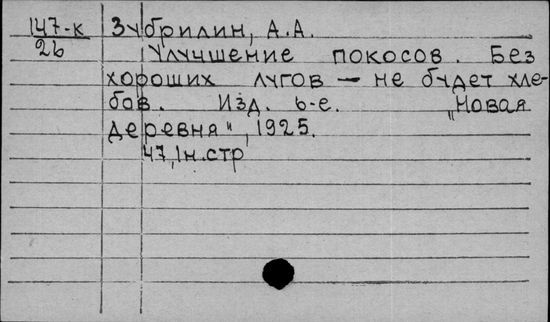 147-к Зубрилин, А.А.
26 Улучшение покосов. Без
хороших лугов — не будет хле-
бов. Изд. 6-е. „Новая
деревня", 1925.
47, 1н.стр